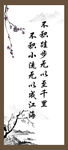 不积跬步无以至千里
不积小流无以成江海